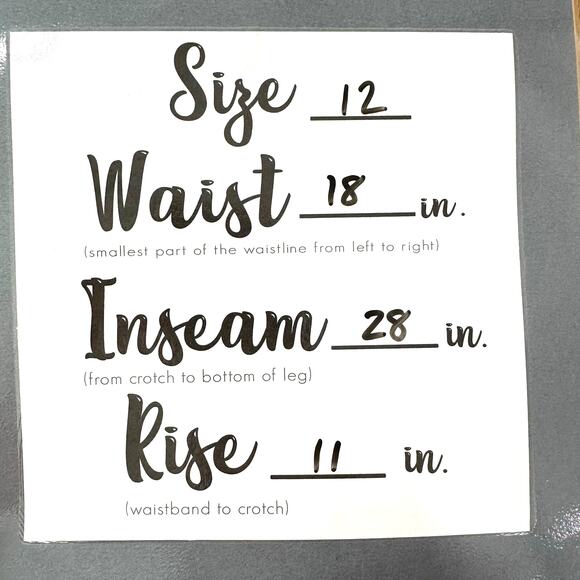 Size 12
Waist 18 in.
(smallest part of the waistline from left to right)
Inseam 28 in.
(from crotch to bottom of leg)
Rise 11 in.
(waistband to crotch)